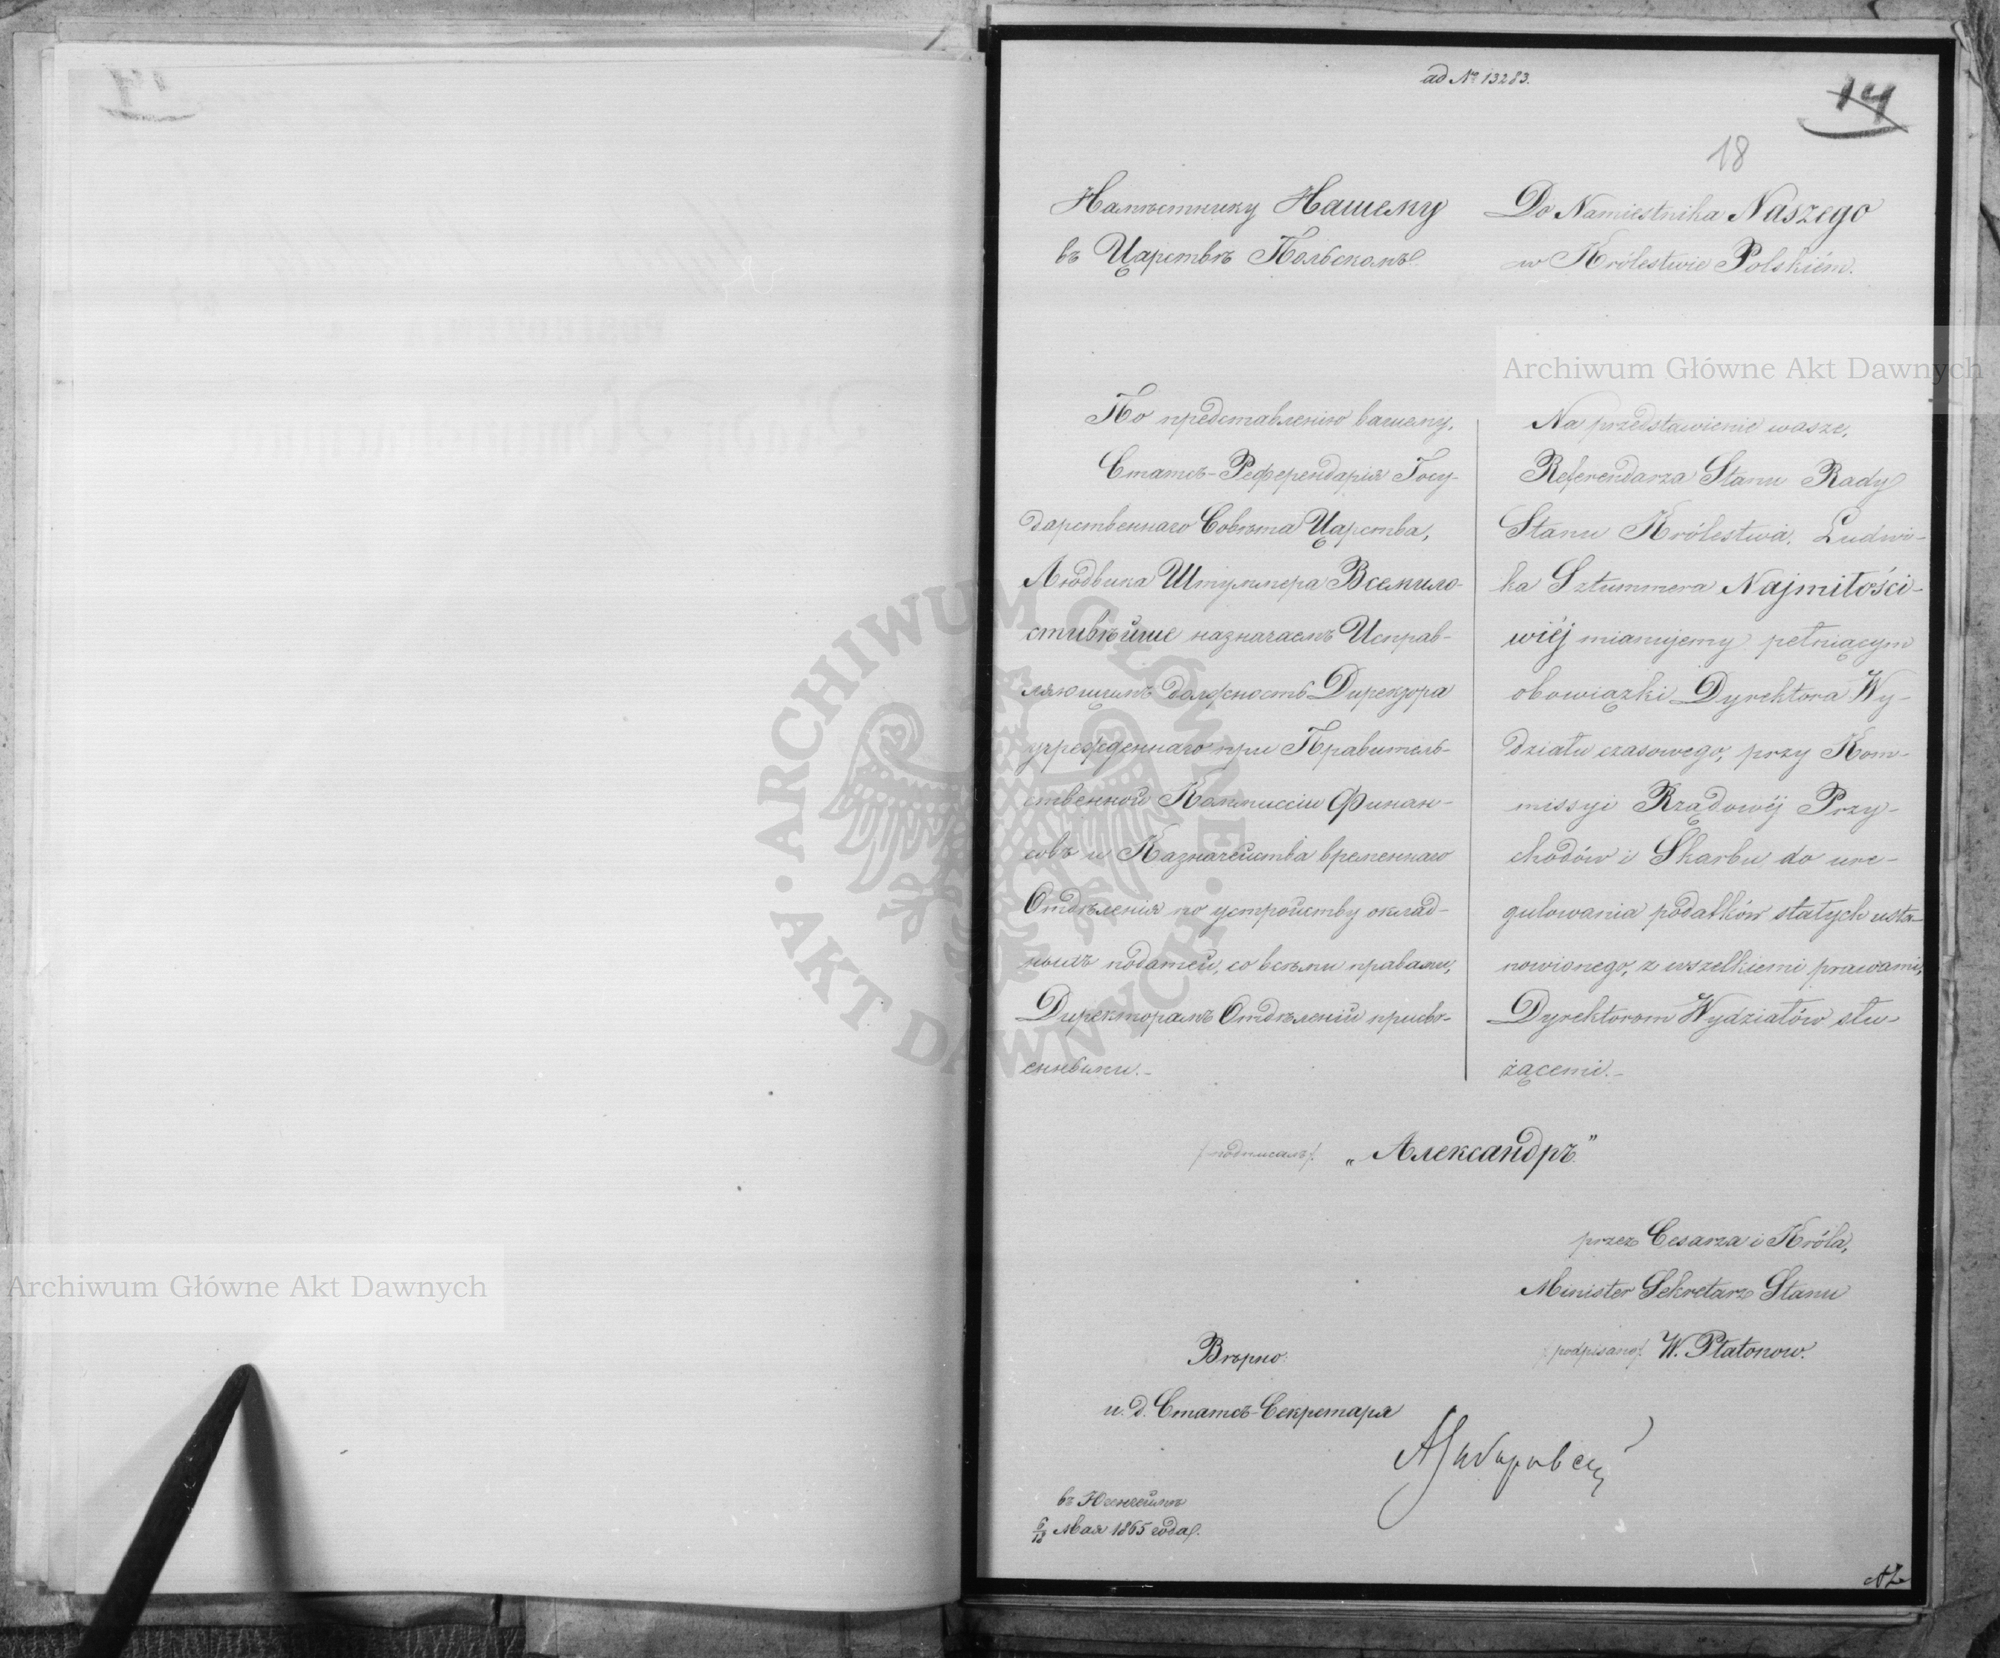 ad № 13283.
14
18
Намѣстнику Нашему
въ Царствѣ Польскомъ.
По представленію вашему,
Статсъ-Референдарія Госу-
дарственнаго Совѣта Царства,
Людвика Штуммера Всемило-
стивѣйше назначаемъ Исправ-
ляющимъ должность Директора
учрежденнаго при Правитель-
ственной Коммиссіи Финан-
совъ и Казначейства временнаго
Отдѣленія по устройству оклад-
ныхъ податей, со всѣми правами,
Директорамъ Отдѣленій присво-
енными.-
Do Namiestnika Naszego
w Królestwie Polskiém.
Na przedstawienie wasze,
Referendarza Stanu Rady
Stanu Królestwa, Ludwi-
ka Sztummera Najmiłości-
wiéj mianujemy pełniącym
obowiązki Dyrektora Wy-
działu czasowego, przy Kom-
missyi Rządowéj Przy-
chodów i Skarbu do ure-
gulowania podatków stałych usta-
nowionego, z wszelkiemi prawami,
Dyrektorom Wydziałów słu-
żącemi.-
/podписалъ/. „Александръ."
przez Cesarza i Króla,
Minister Sekretarz Stanu
/podpisano/. W. Płatonow.
Вѣрно:
и. д. Статсъ-Секретаря
въ Югенгеймѣ
6/18 Мая 1865 года.
Archiwum Główne Akt Dawnych
Archiwum Główne Akt Dawnych
ARCHIWUM GŁÓWNE · AKT DAWNYCH ·